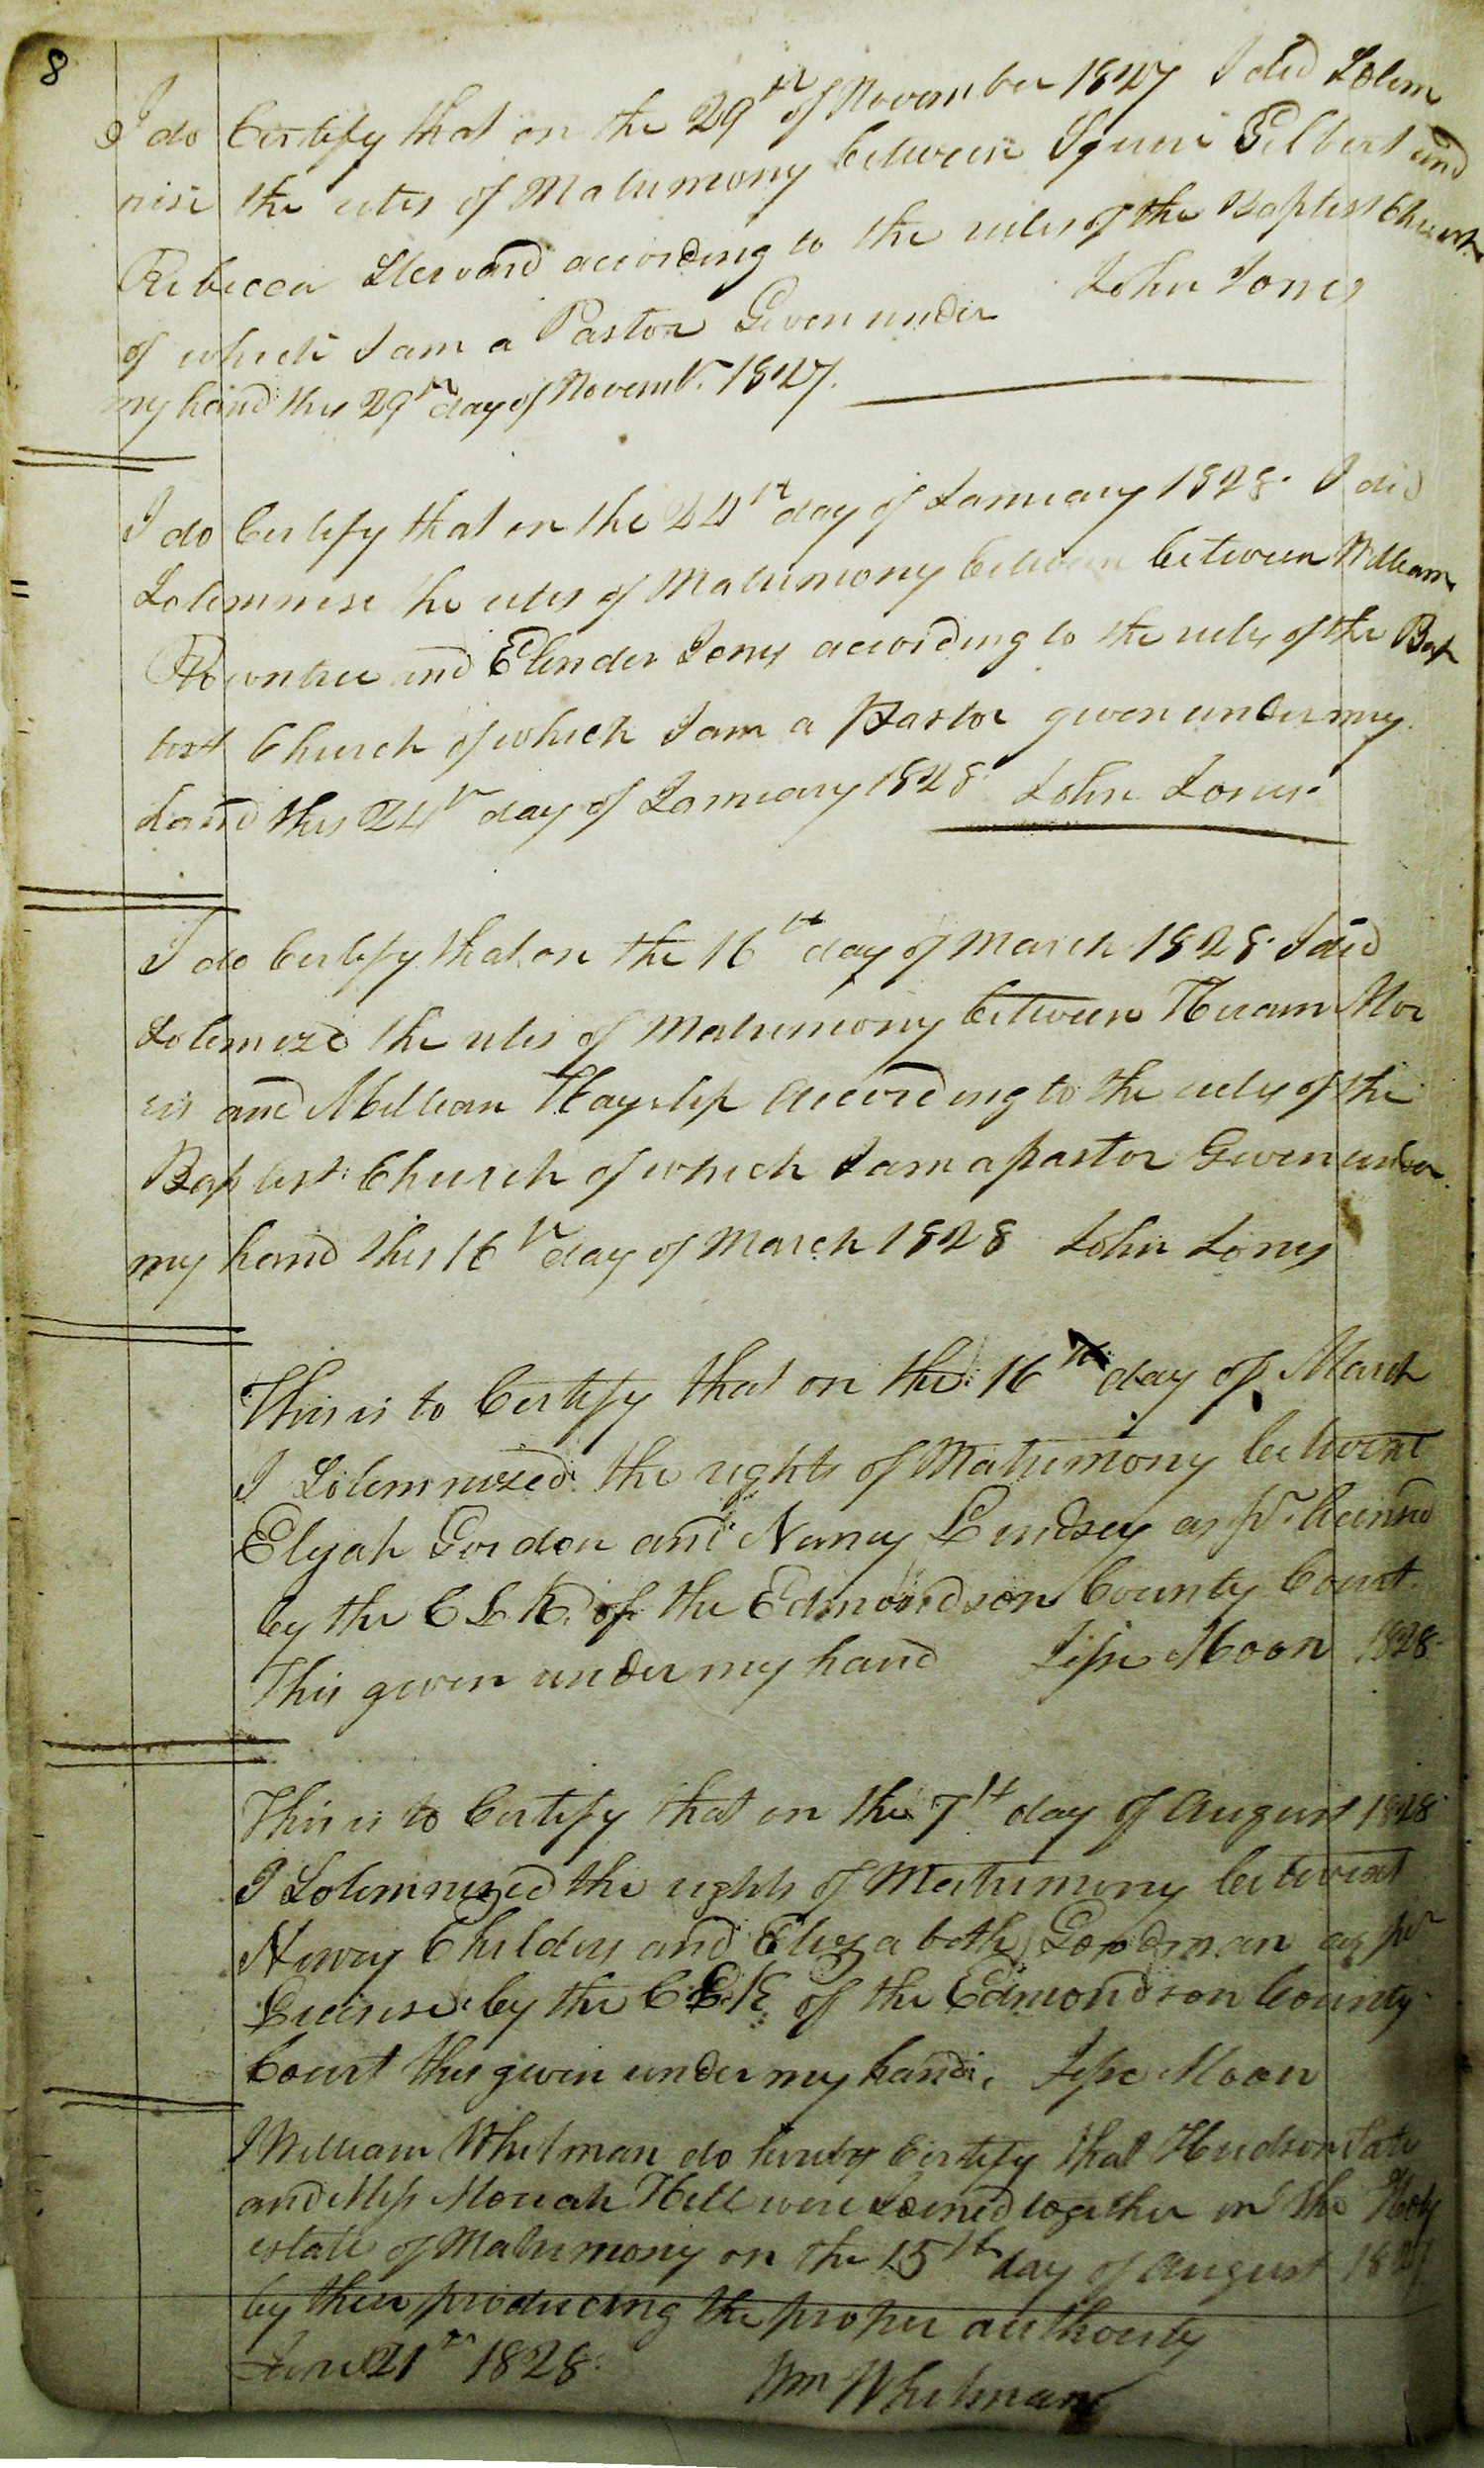 8
I do Certify that on the 29th of November 1827 I did Solem
nise the rites of Matrimony between Squire Gilbert and
Rebecca Steward according to the rules of the Baptist Church
of which I am a Pastor Given under John Jones
my hand this 29th day of Novembr. 1827.
I do Certify that on the 24th day of January 1828. I did
Solemnise the rites of Matrimony between between William
Rountree and Elender Jones according to the rules of the Bap
tist Church of which I am a Pastor given under my
hand this 24th day of January 1828 John Jones.
I do Certify that on the 16th day of March 1828. I did
Solemized the rites of Matrimony between Hiram Mor
ris and Millian Hayslip according to the rules of the
Baptist Church of which I am a pastor Given under
my hand this 16th day of March 1828 John Jones
This is to Certify that on the 16th day of March
I Solemnized the rights of Matrimony betwixt
Elijah Gordon and Nancy Lindsey as pr. licensed
by the C L K. of the Edmondson County Court.
This given under my hand Jesse Moon 1828.
This is to Certify that on the 7th day of August 1828
I Solemnized the rights of Matrimony betwixt
Henry Childers and Elizabeth Goodman as pr
License by the C L K of the Edmondson County
Court this given under my hand. Jesse Moon
I William Whitman do hereby Certify that Hudson Tate
and Miss Moriah Hill were Joined together in the Holy
estate of Matrimony on the 15th day of August 1827
by their producing the proper authority
June 21st 1828. Wm Whitman